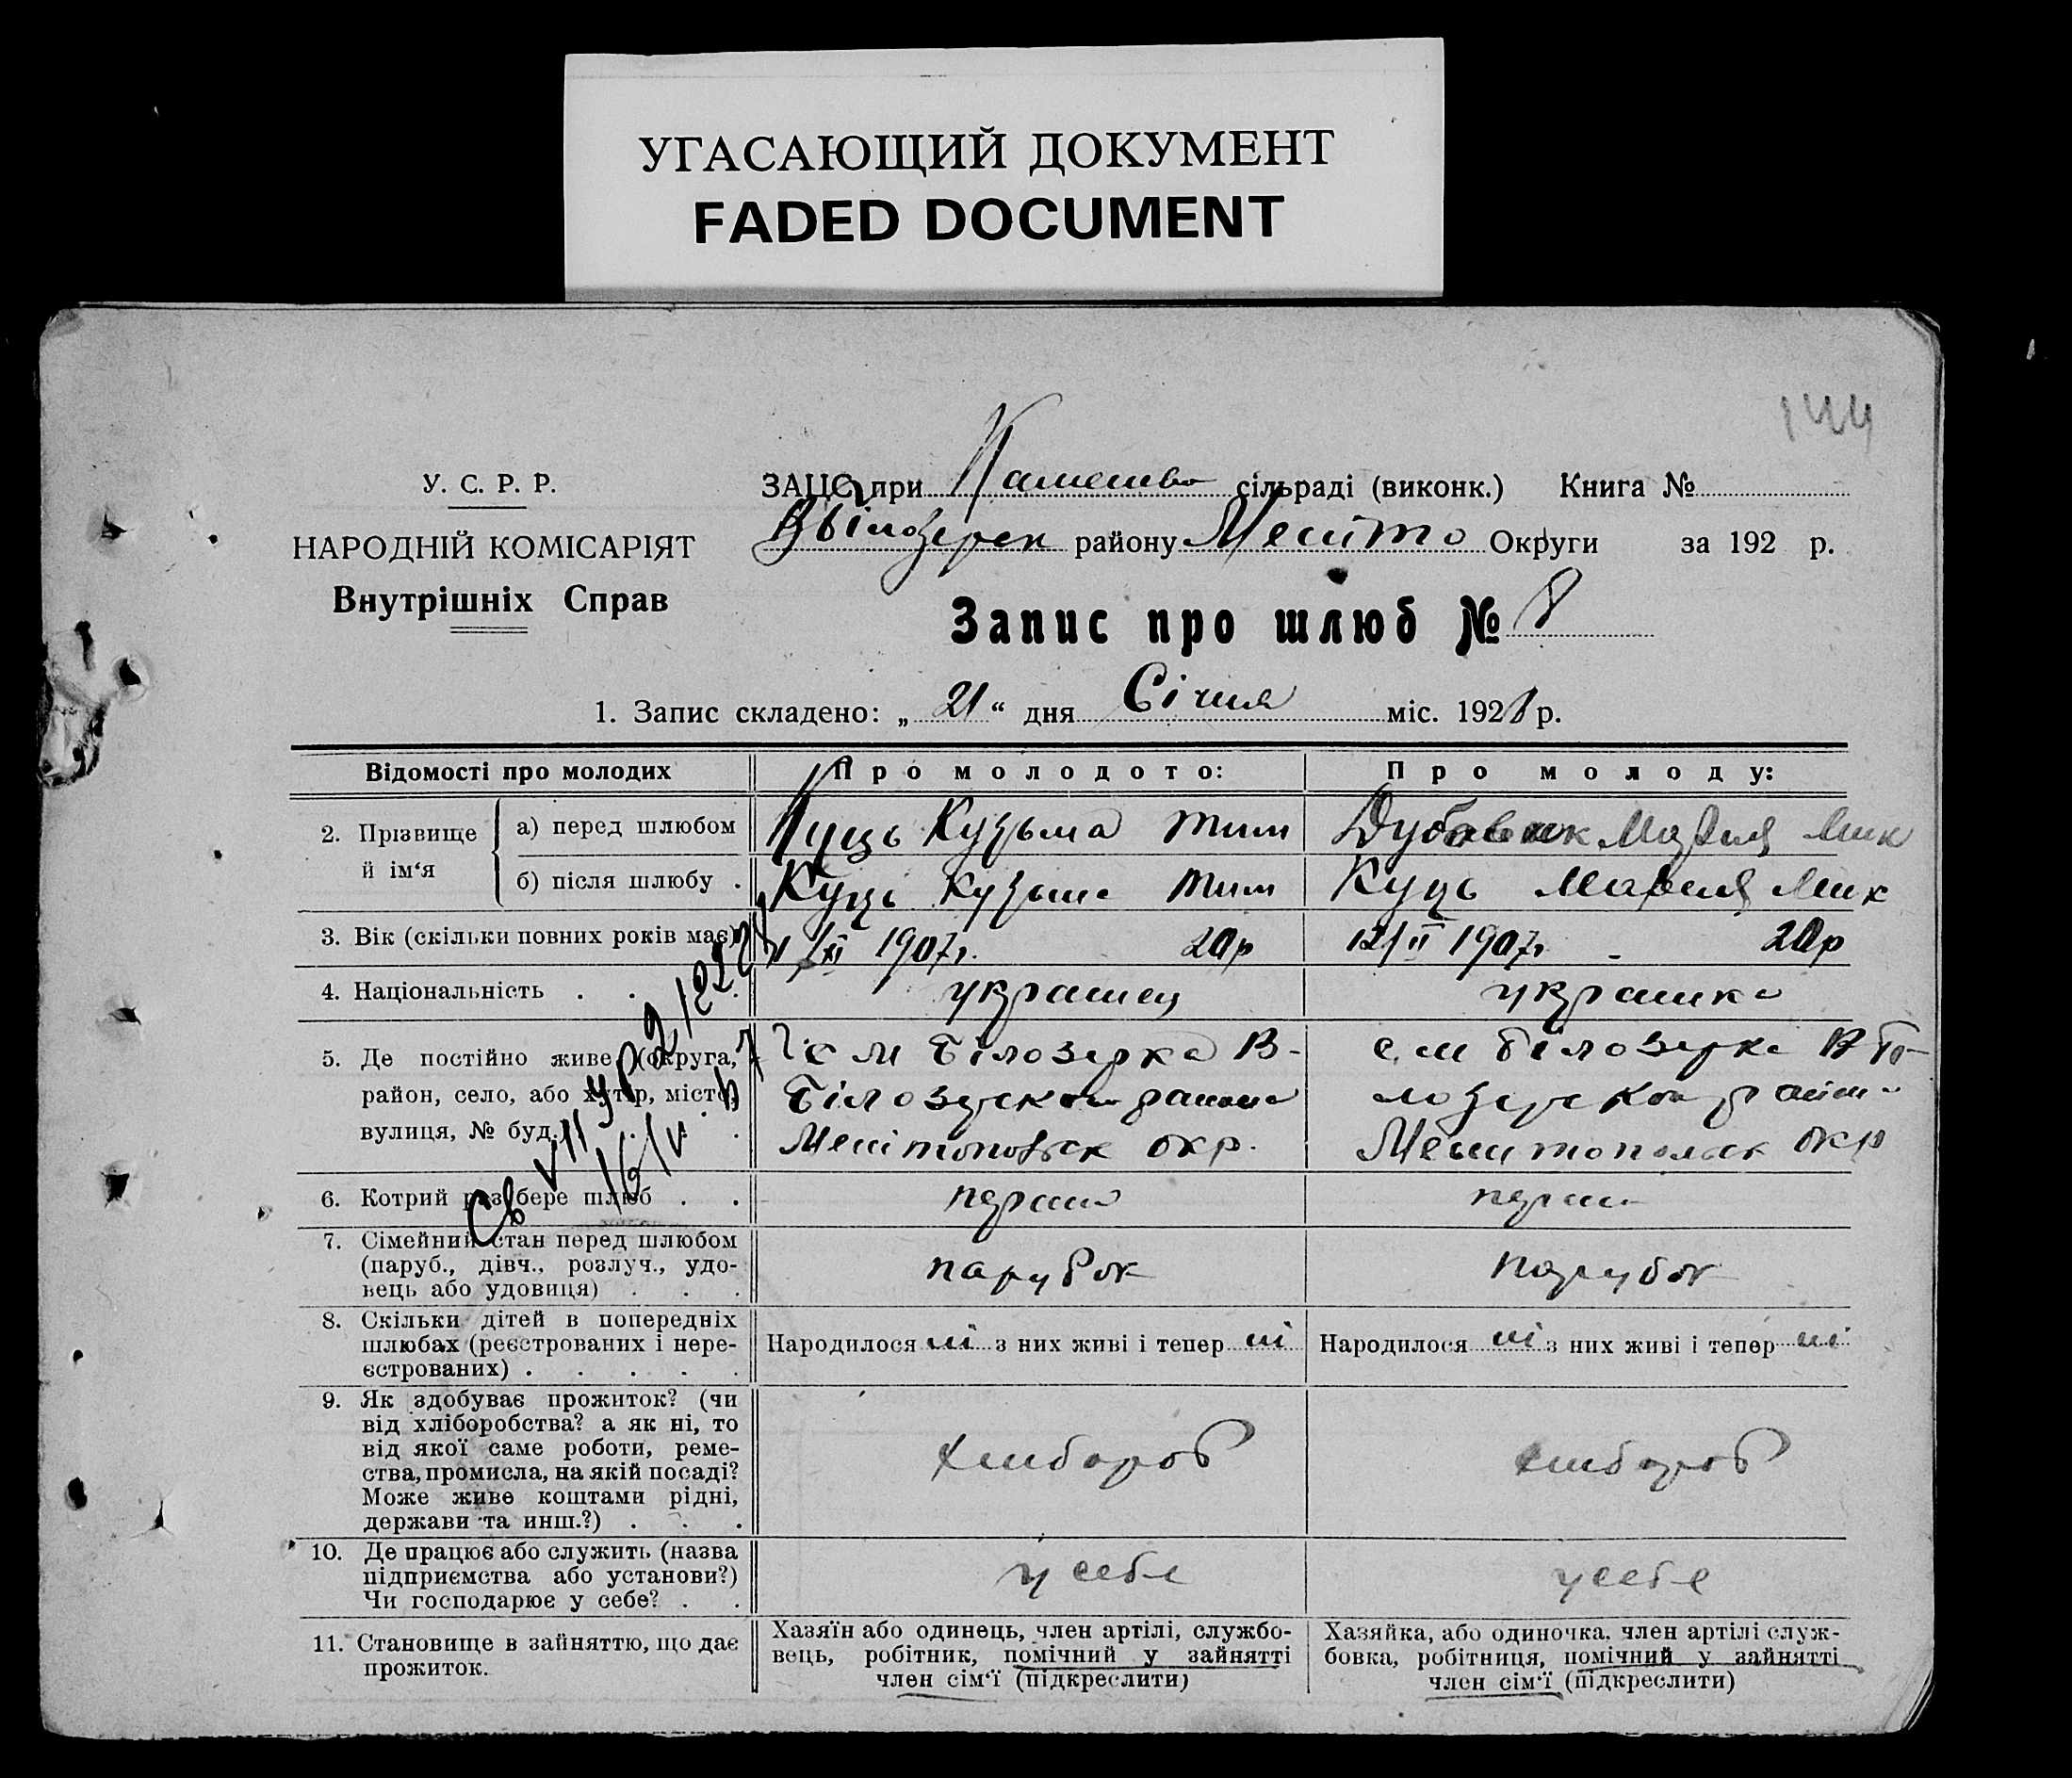 УГАСАЮЩИЙ ДОКУМЕНТ
FADED DOCUMENT
144
У. С. Р. Р.
НАРОДНІЙ КОМІСАРІЯТ
Внутрішніх Справ
ЗАЦС при сільраді (виконк.) Книга №
району Меліто Округи за 192 р.
Запис про шлюб № 8
1. Запис складено: „ 21 “ дня Січня міс. 1928 р.
Відомості про молодих
Про молодого:
Про молоду:
2. Прізвище й ім‘я
а) перед шлюбом
Куць Кузьма Тим
Мария Мик
б) після шлюбу .
Куць Кузьма Тим
Куць Мария Мик
3. Вік (скільки повних років має)
1907р. 20р
12/II 1907р. 20р
4. Національність . . .
украинец
украинка
5. Де постійно живе (округа,
район, село, або хутір, місто,
вулиця, № буд.) . . .
с М Білозерка В-
Білозерском района
Мелітопольск окр.
с. М Білозерка В Бі-
лозерском района
Мелитопольск окр
6. Котрий раз бере шлюб . .
перший
перший
7. Сімейний стан перед шлюбом
(паруб., дівч., розлуч., удо-
вець або удовиця) . . .
парубок
парубок
8. Скільки дітей в попередніх
шлюбах (реєстрованих і нере-
єстрованих) . . . . .
Народилося ні з них живі і тепер ні
Народилося ні з них живі і тепер ні
9. Як здобуває прожиток? (чи
від хліборобства? а як ні, то
від якої саме роботи, реме-
ства, промисла, на якій посаді?
Може живе коштами рідні,
держави та инш.?) . . .
хлібороб
хлібороб
10. Де працює або служить (назва
підприємства або установи?)
Чи господарює у себе? . .
у себе
у себе
11. Становище в зайняттю, що дає
прожиток.
Хазяїн або одинець, член артілі, службо-
вець, робітник, помічний у зайнятті
член сім‘ї (підкреслити)
Хазяйка, або одиночка, член артілі служ-
бовка, робітниця, помічний у зайнятті
член сім‘ї (підкреслити)